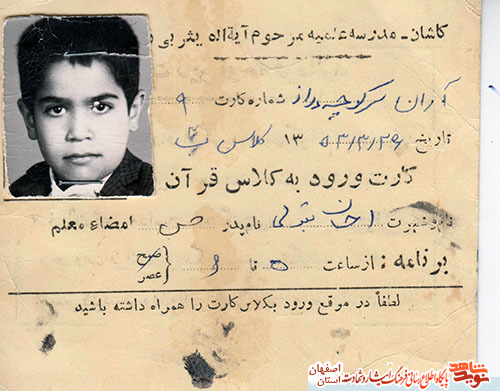 کاشان - مدرسه علمیه مرحوم آیة اله یثربی
آران سرکوچه دراز شماره کارت ۹
تاریخ ۵۳/۳/۲۹ ۱۳ کلاس
کارت ورود به کلاس قرآن
نام و شهرت احسان نام پدر امضاء معلم
برنامه : از ساعت ۵ تا ۶ صبح
عصر
لطفاً در موقع ورود بکلاس کارت را همراه داشته باشید
نوید شاهد
پایگاه اطلاع رسانی فرهنگ ایثار و شهادت
استان اصفهان